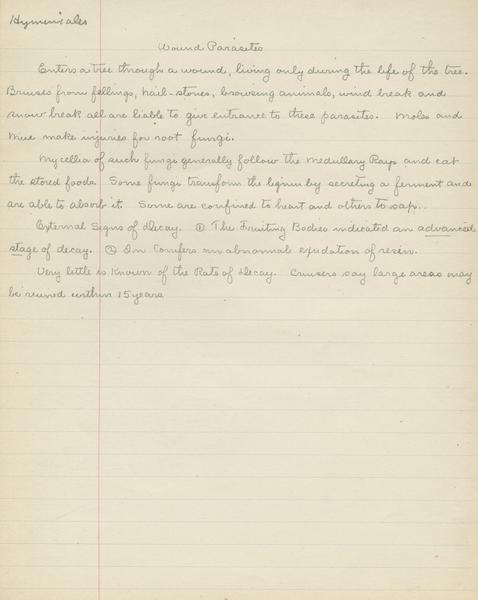 Hymeniales
Wound Parasites
Enters a tree through a wound, living only during the life of the tree.
Bruises from fellings, hail-stones, browsing animals, wind break and
snow break all are liable to give entrance to these parasites. Moles and
mice make injuries for root fungi.
Mycelia of such fungi generally follow the Medullary Rays and eat
the stored foods. Some fungi transform the lignin by secreting a ferment and
are able to absorb it. Some are confined to heart and others to sap.
External Signs of Decay. ① The Fruiting Bodies indicated an advanced
stage of decay. ② In Conifers an abnormal exudation of resin.
Very little is known of the Rate of Decay. Cruisers say large areas may
be ruined within 15 years